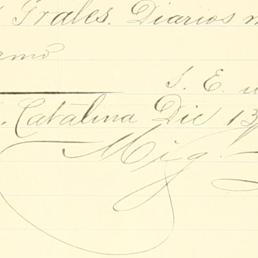 Frales. Diarios
S. E.
Catalina Dic 13
Mig